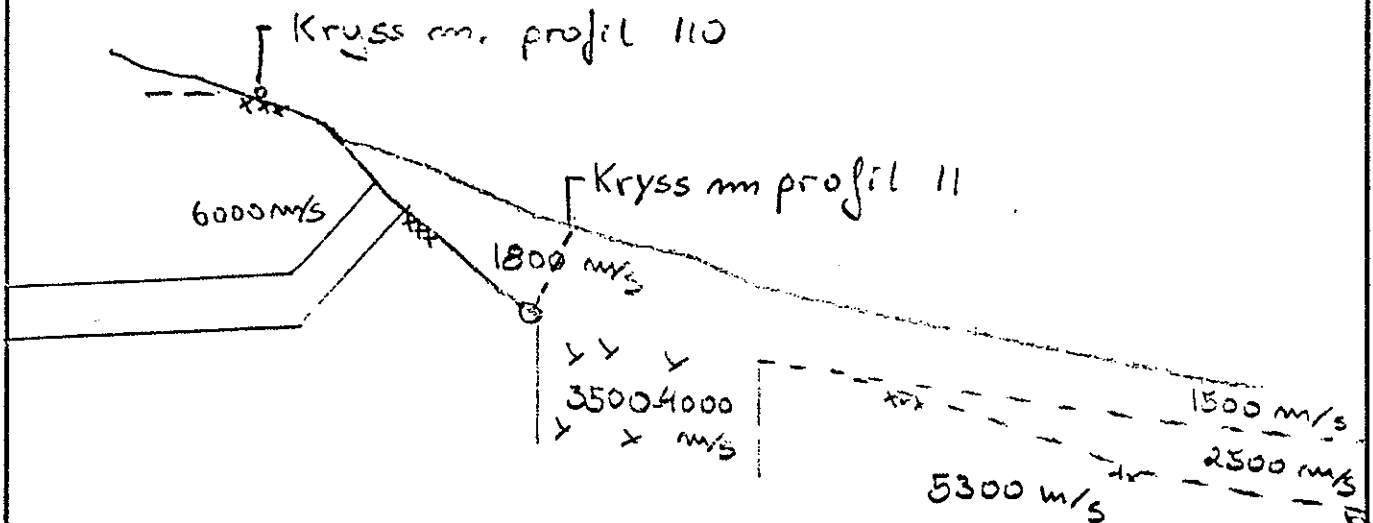 Kryss m. profil 110
Kryss m profil 11
6000 m/s
1800 m/s
3500-4000
m/s
1500 m/s
2500 m/s
5300 m/s